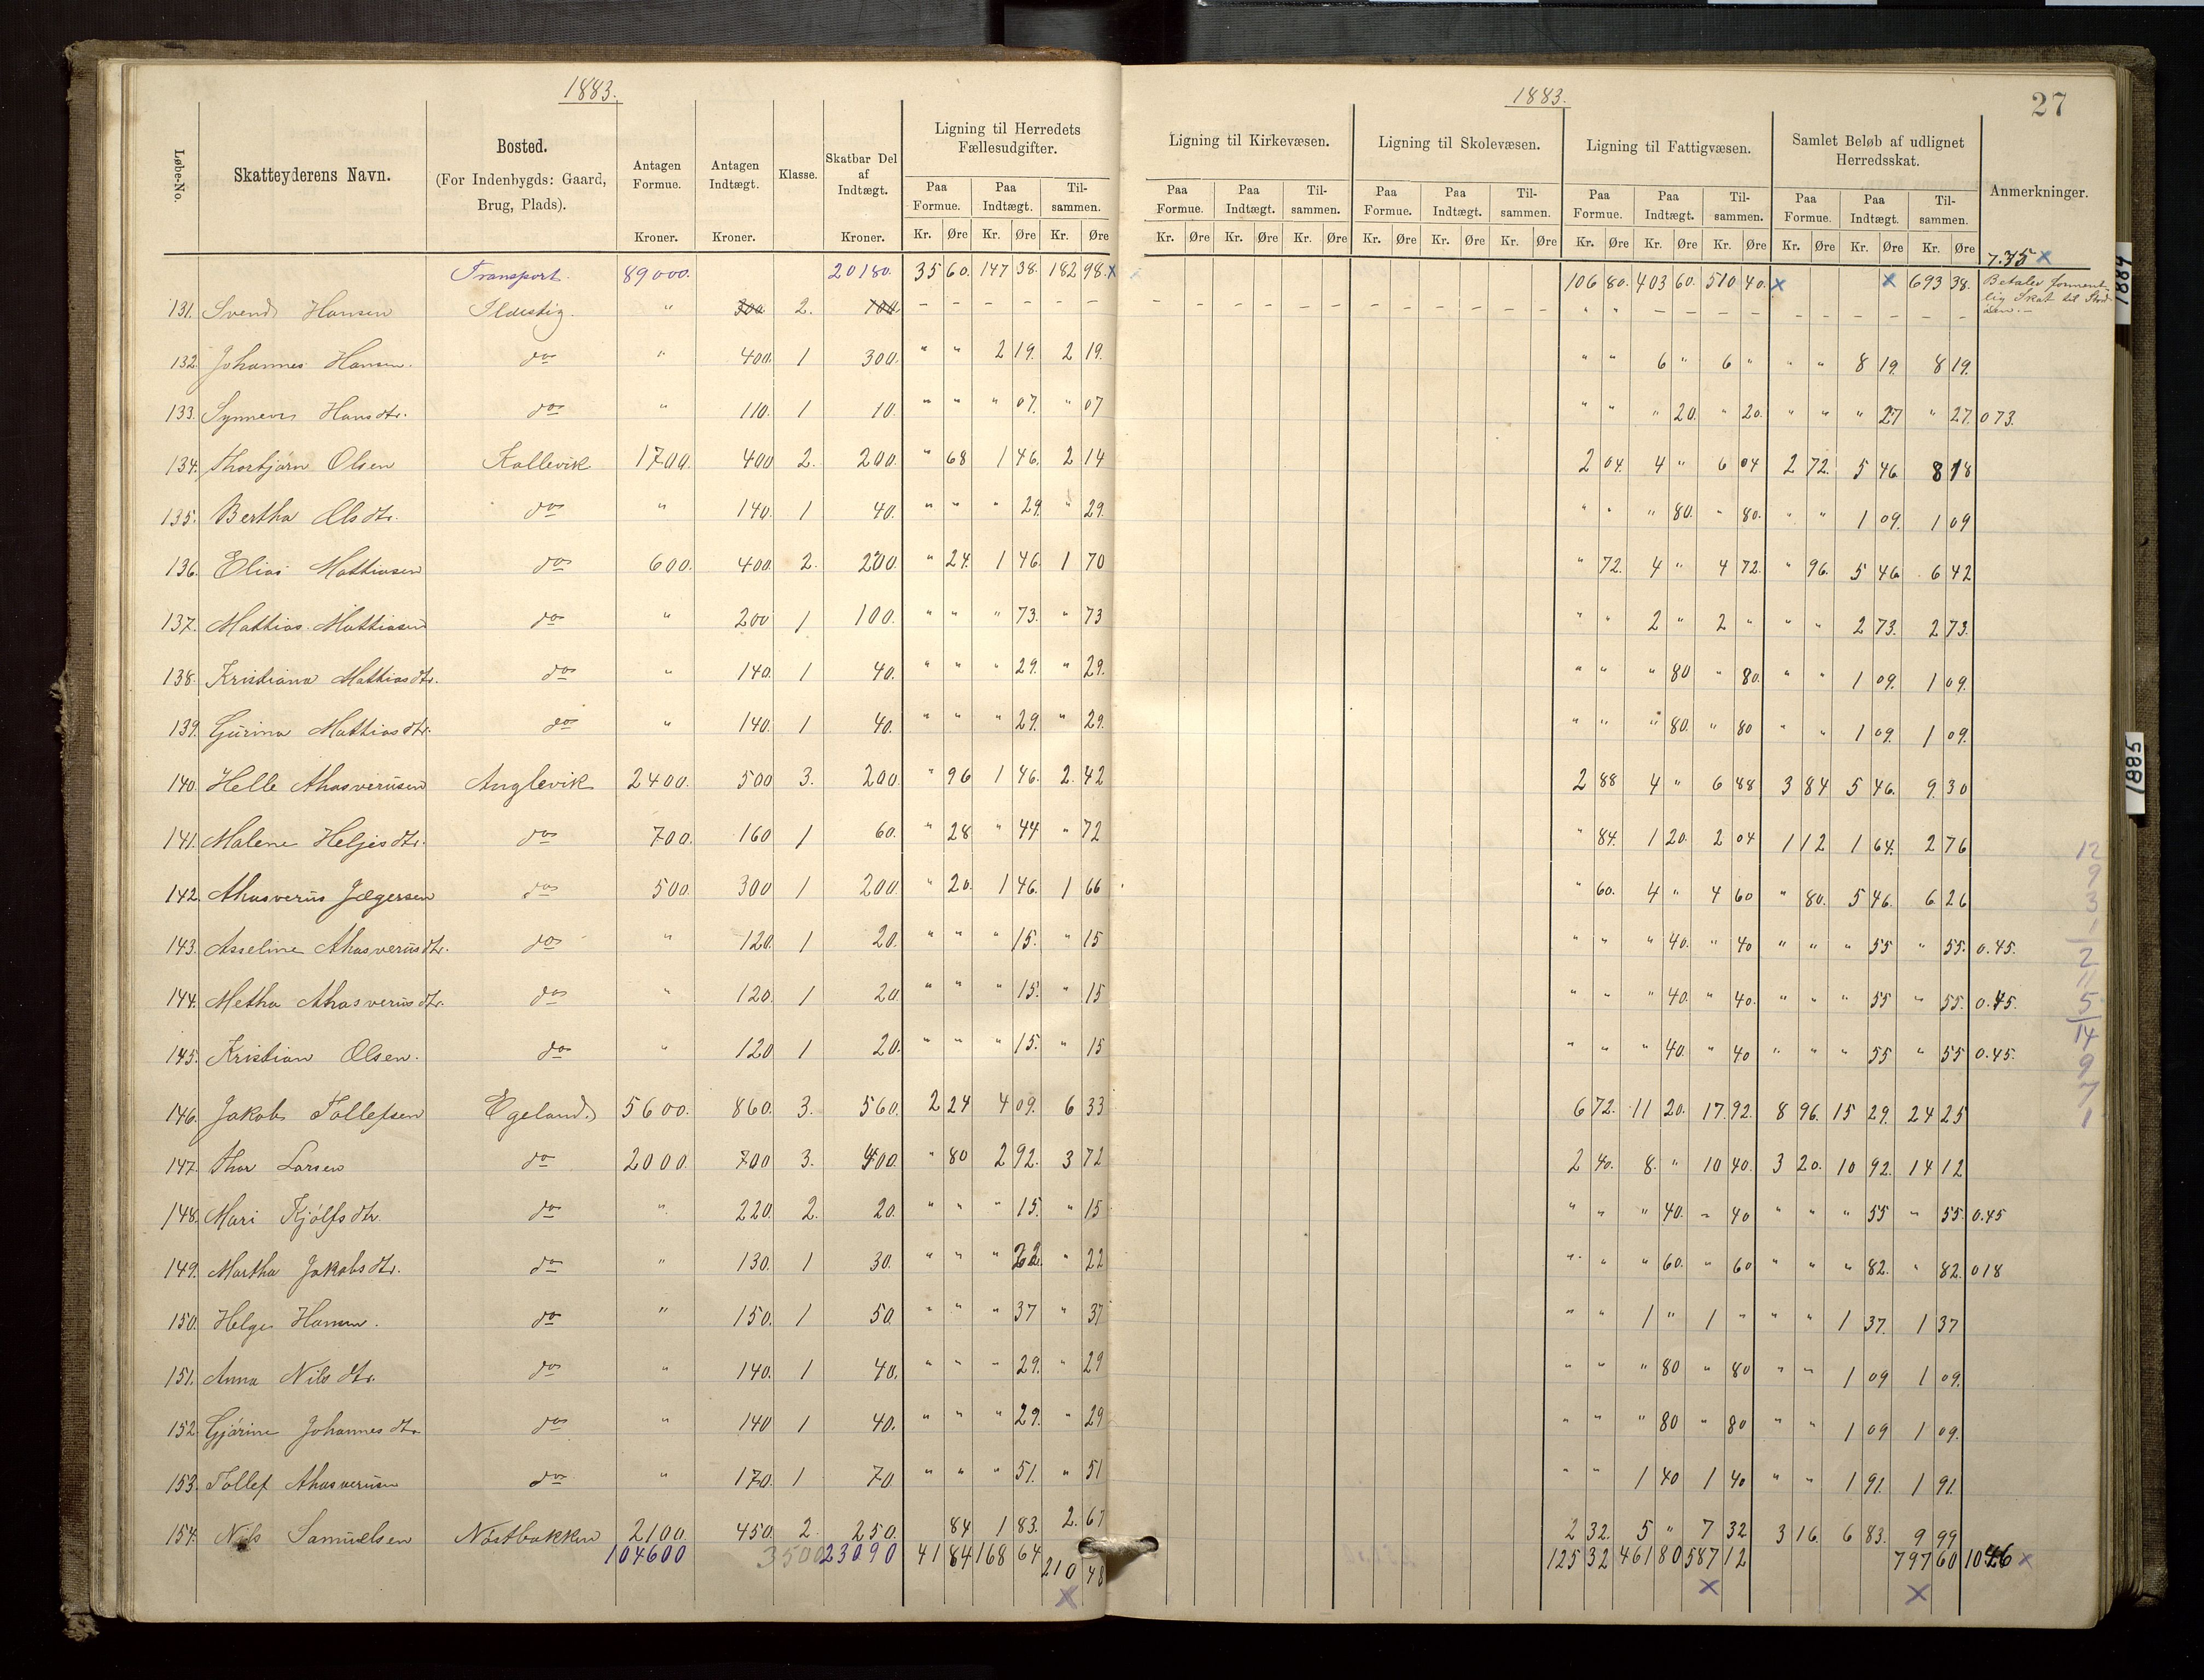 1883.
1883.
27
Løbe-No. | Skatteyderens Navn. | Bosted. (For Indenbygds: Gaard, Brug, Plads). | Antagen Formue. Kroner. | Antagen Indtægt. Kroner. | Klasse. | Skatbar Del af Indtægt. Kroner. | Ligning til Herredets Fællesudgifter. | Ligning til Kirkevæsen. | Ligning til Skolevæsen. | Ligning til Fattigvæsen. | Samlet Beløb af udlignet Herredsskat. | Anmerkninger.
Paa Formue. | Paa Indtægt. | Tilsammen. | Paa Formue. | Paa Indtægt. | Tilsammen. | Paa Formue. | Paa Indtægt. | Tilsammen. | Paa Formue. | Paa Indtægt. | Tilsammen. | Paa Formue. | Paa Indtægt. | Tilsammen.
Kr. Øre Kr. Øre Kr. Øre Kr. Øre Kr. Øre Kr. Øre Kr. Øre Kr. Øre Kr. Øre Kr. Øre Kr. Øre Kr. Øre Kr. Øre Kr. Øre Kr. Øre
7.35 x
Transport. 89000. 20180. 35 60. 147 38. 182 98. x 106 80. 403 60. 510 40. x x 693 38.
131. Svend Hansen Ildestig. " 300 2. 100 – – – – – – " " – – – – – – – – – – Betaler forment- lig Skat til
132. Johannes Hansen. do " 400. 1 300. " " 2 19. 2 19. " " 6 " 6 " " " 8 19. 8 19.
133. Synneve Hansdtr. do " 110. 1 10. " " " 07. " 07 " " " 20. " 20. " " " 27 " 27. 073.
134. Thorbjørn Olsen Kallevik 1700. 400 2. 200. " 68 1 46. 2 14 2 04. 4 " 6 04 2 72. 5 46 8 18
135. Bertha Olsdtr. do " 140. 1 40. " " " 29. " 29. " " " 80. " 80. " " 1 09. 1 09
136. Elias Mathiasen do 600. 400 2. 200. " 24. 1 46. 1 70 " 72. 4 " 4 72. " 96. 5 46 6 42
137. Mathias Mathiasen do " 200 1 100. " " " 73. " 73 " " 2 " 2 " " " 2 73. 2 73.
138. Kristiana Mathiasdtr. do " 140. 1 40. " " " 29. " 29. " " " 80 " 80. " " 1 09. 1 09.
139. Gurina Mathiasdtr. do " 140. 1 40. " " " 29. " 29. " " " 80. " 80 " " 1 09. 1 09.
140. Helle Ahasverusen Anglevik 2400. 500 3. 200. " 96 1 46. 2. 42 2 88 4 " 6 88 3 84 5 46. 9. 30
141. Malene Heljesdtr. do 700. 160 1 60. " 28 " 44 " 72 " 84. 1 20. 2 04 1 12 1 64. 2 76
142. Ahasverus Jægersen do 500. 300 1 200. " 20. 1 46. 1 66 " 60. 4 " 4 60 " 80. 5 46. 6 26
143. Asseline Ahasverusdtr. do " 120. 1 20. " " " 15. " 15 " " " 40. " 40 " " " 55 " 55. 0.45.
144. Metha Ahasverusdtr. do " 120. 1 20. " " " 15. " 15 " " " 40. " 40. " " " 55 " 55. 0.45.
145. Kristian Olsen. do " 120 1 20. " " " 15. " 15 " " " 40. " 40 " " " 55 " 55 0.45.
146. Jakob Tollefsen Egeland 5600. 860. 3. 560. 2 24 4 09. 6 33 6 72. 11 20. 17. 92. 8 96. 15 29. 24 25
147. Thor Larsen do 2000. 700 3. 400. " 80 2 92. 3 72 2 40. 8. " 10 40. 3 20. 10 92. 14 12
148. Mari Kjølfsdtr. do " 220. 2. 20. " " " 15. " 15 " " " 40. " 40 " " " 55 " 55. 0.45
149. Martha Jakobsdtr. do " 130. 1 30. " " " 22. " 22 " " " 60. " 60 " " " 82. " 82. 018
150. Helge Hansen. do " 150. 1 50. " " " 37 " 37 " " 1 " 1 " " " 1 37. 1 37
151. Anna Nilsdtr. do " 140. 1 40. " " " 29. " 29 " " " 80 " 80 " " 1 09 1 09.
152. Gjørine Johannesdtr. do " 140 1 40. " " " 29. " 29 " " " 80 " 80 " " 1 09 1 09.
153. Tollef Ahasverusen do " 170. 1 70. " " " 51. " 51 " " 1 40 1 40 " " 1 91. 1 91.
154. Nils Samuelsen Nøstbakken 2100. 450. 2. 250. 84 1 83. 2. 67 2 32. 5 " 7 32 3 16. 6 83. 9 99
104600 3500 23090 41 84 168 64 210 48 125 32 461 80 587 12 797 60 1046 x
x x x
12
9
3
2
11
5
14
9
7
1
1884
1885